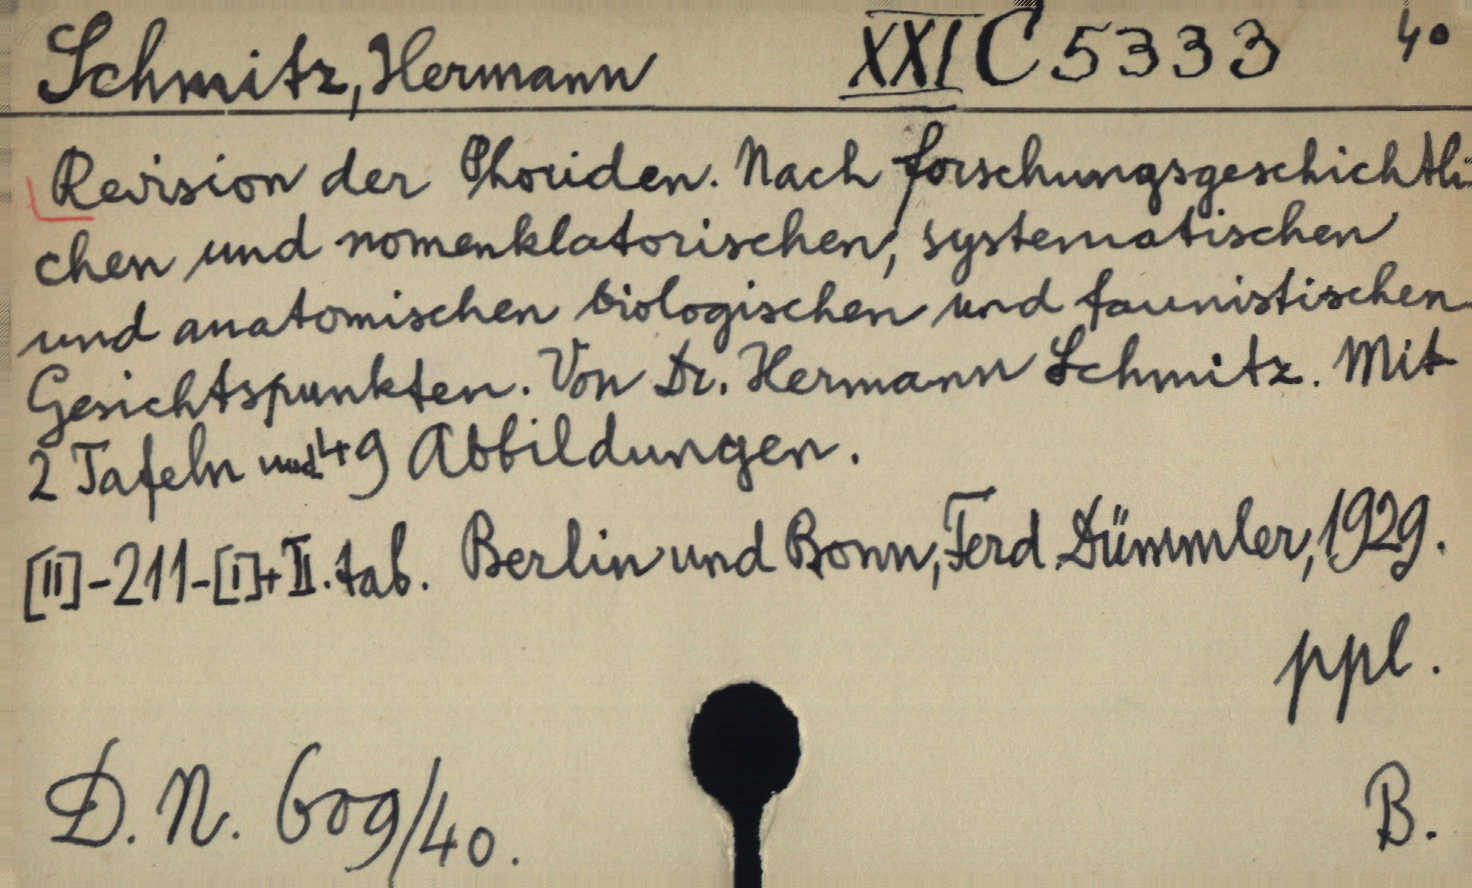 Schmitz, Hermann XXI C 5333 4o
Revision der Phoriden. Nach forschungsgeschichtli-
chen und nomenklatorischen, systematischen
und anatomischen biologischen und faunistischen
Gesichtspunkten. Von Dr. Hermann Schmitz. Mit
2 Tafeln und 49 Abbildungen.
[II]-211-[I]+II. tab. Berlin und Bonn, Ferd. Dümmler, 1929.
ppl.
D. N. 609/40.
B.